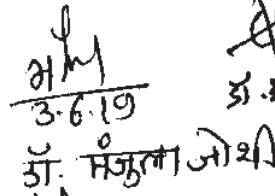 3.6.19
डॉ. मंजुला जोशी